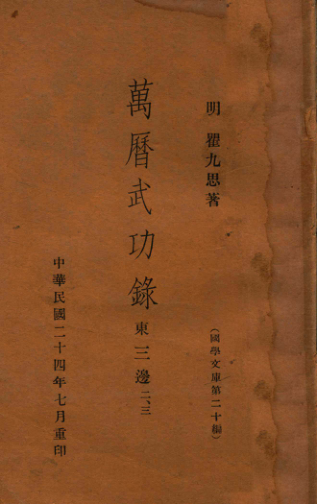 明 瞿九思著
(國學文庫第二十編)
萬曆武功錄 東三邊 二、三
中華民國二十四年七月重印